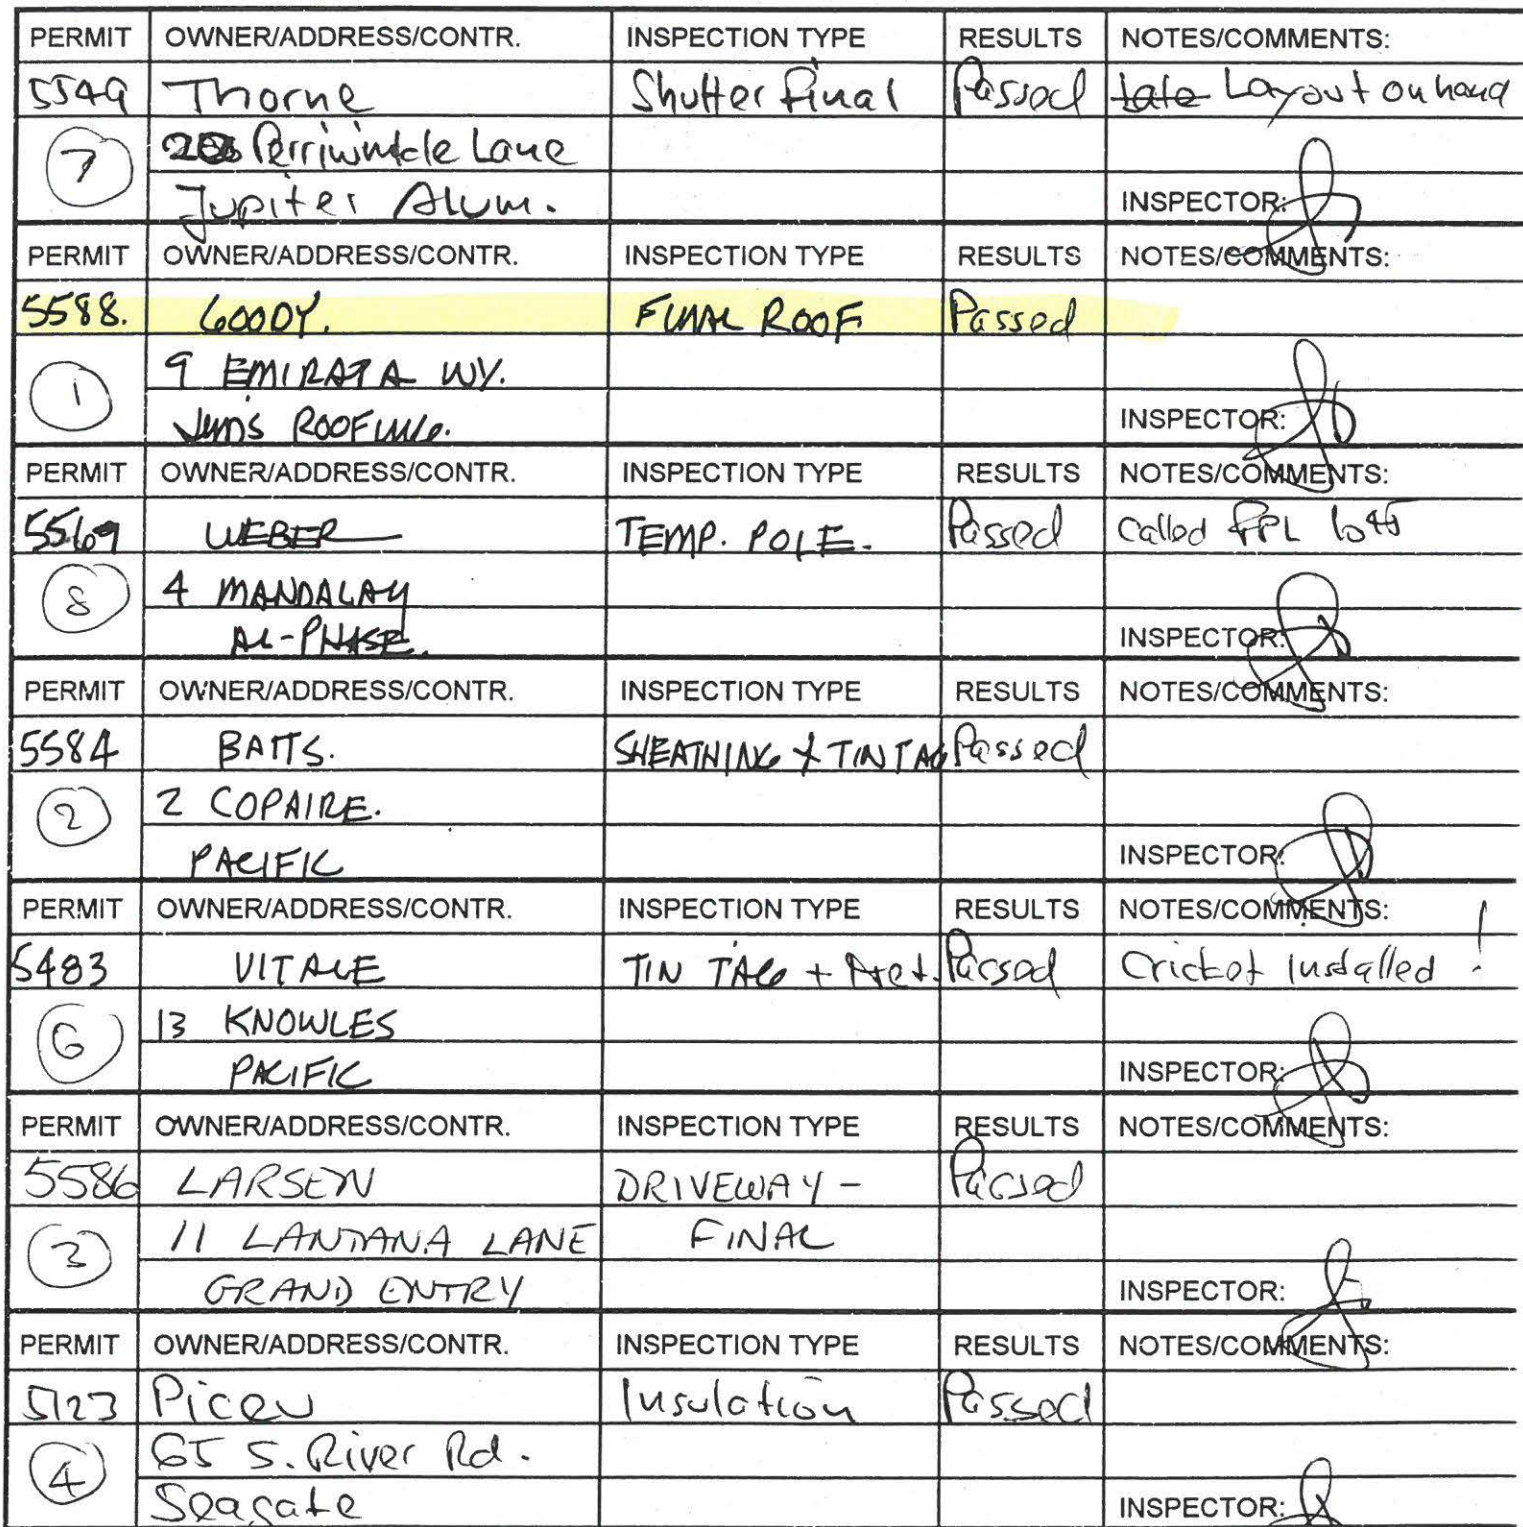 PERMIT OWNER/ADDRESS/CONTR. INSPECTION TYPE RESULTS NOTES/COMMENTS:
5549 Thorne Shutter Final Passed Layout on hand
7 Perriwinkle Lane
Jupiter Alum. INSPECTOR:
PERMIT OWNER/ADDRESS/CONTR. INSPECTION TYPE RESULTS NOTES/COMMENTS:
5588. GOODY. FINAL ROOF Passed
1 9 EMIRATA WY.
ROOFING. INSPECTOR:
PERMIT OWNER/ADDRESS/CONTR. INSPECTION TYPE RESULTS NOTES/COMMENTS:
5569 WEBER TEMP. POLE. Passed Called FPL
8 4 MANDALAY
AL-PHASE. INSPECTOR:
PERMIT OWNER/ADDRESS/CONTR. INSPECTION TYPE RESULTS NOTES/COMMENTS:
5584 BATTS. SHEATHING + TIN TAG Passed
2 2 COPAIRE.
PACIFIC INSPECTOR:
PERMIT OWNER/ADDRESS/CONTR. INSPECTION TYPE RESULTS NOTES/COMMENTS:
5483 VITALE TIN TAG + Met. Passed Cricket Installed !
6 13 KNOWLES
PACIFIC INSPECTOR:
PERMIT OWNER/ADDRESS/CONTR. INSPECTION TYPE RESULTS NOTES/COMMENTS:
5586 LARSEN DRIVEWAY - Passed
3 11 LANTANA LANE FINAL
GRAND ENTRY INSPECTOR:
PERMIT OWNER/ADDRESS/CONTR. INSPECTION TYPE RESULTS NOTES/COMMENTS:
5123 Piceu Insulation Passed
4 65 S. River Rd.
Seagate INSPECTOR: